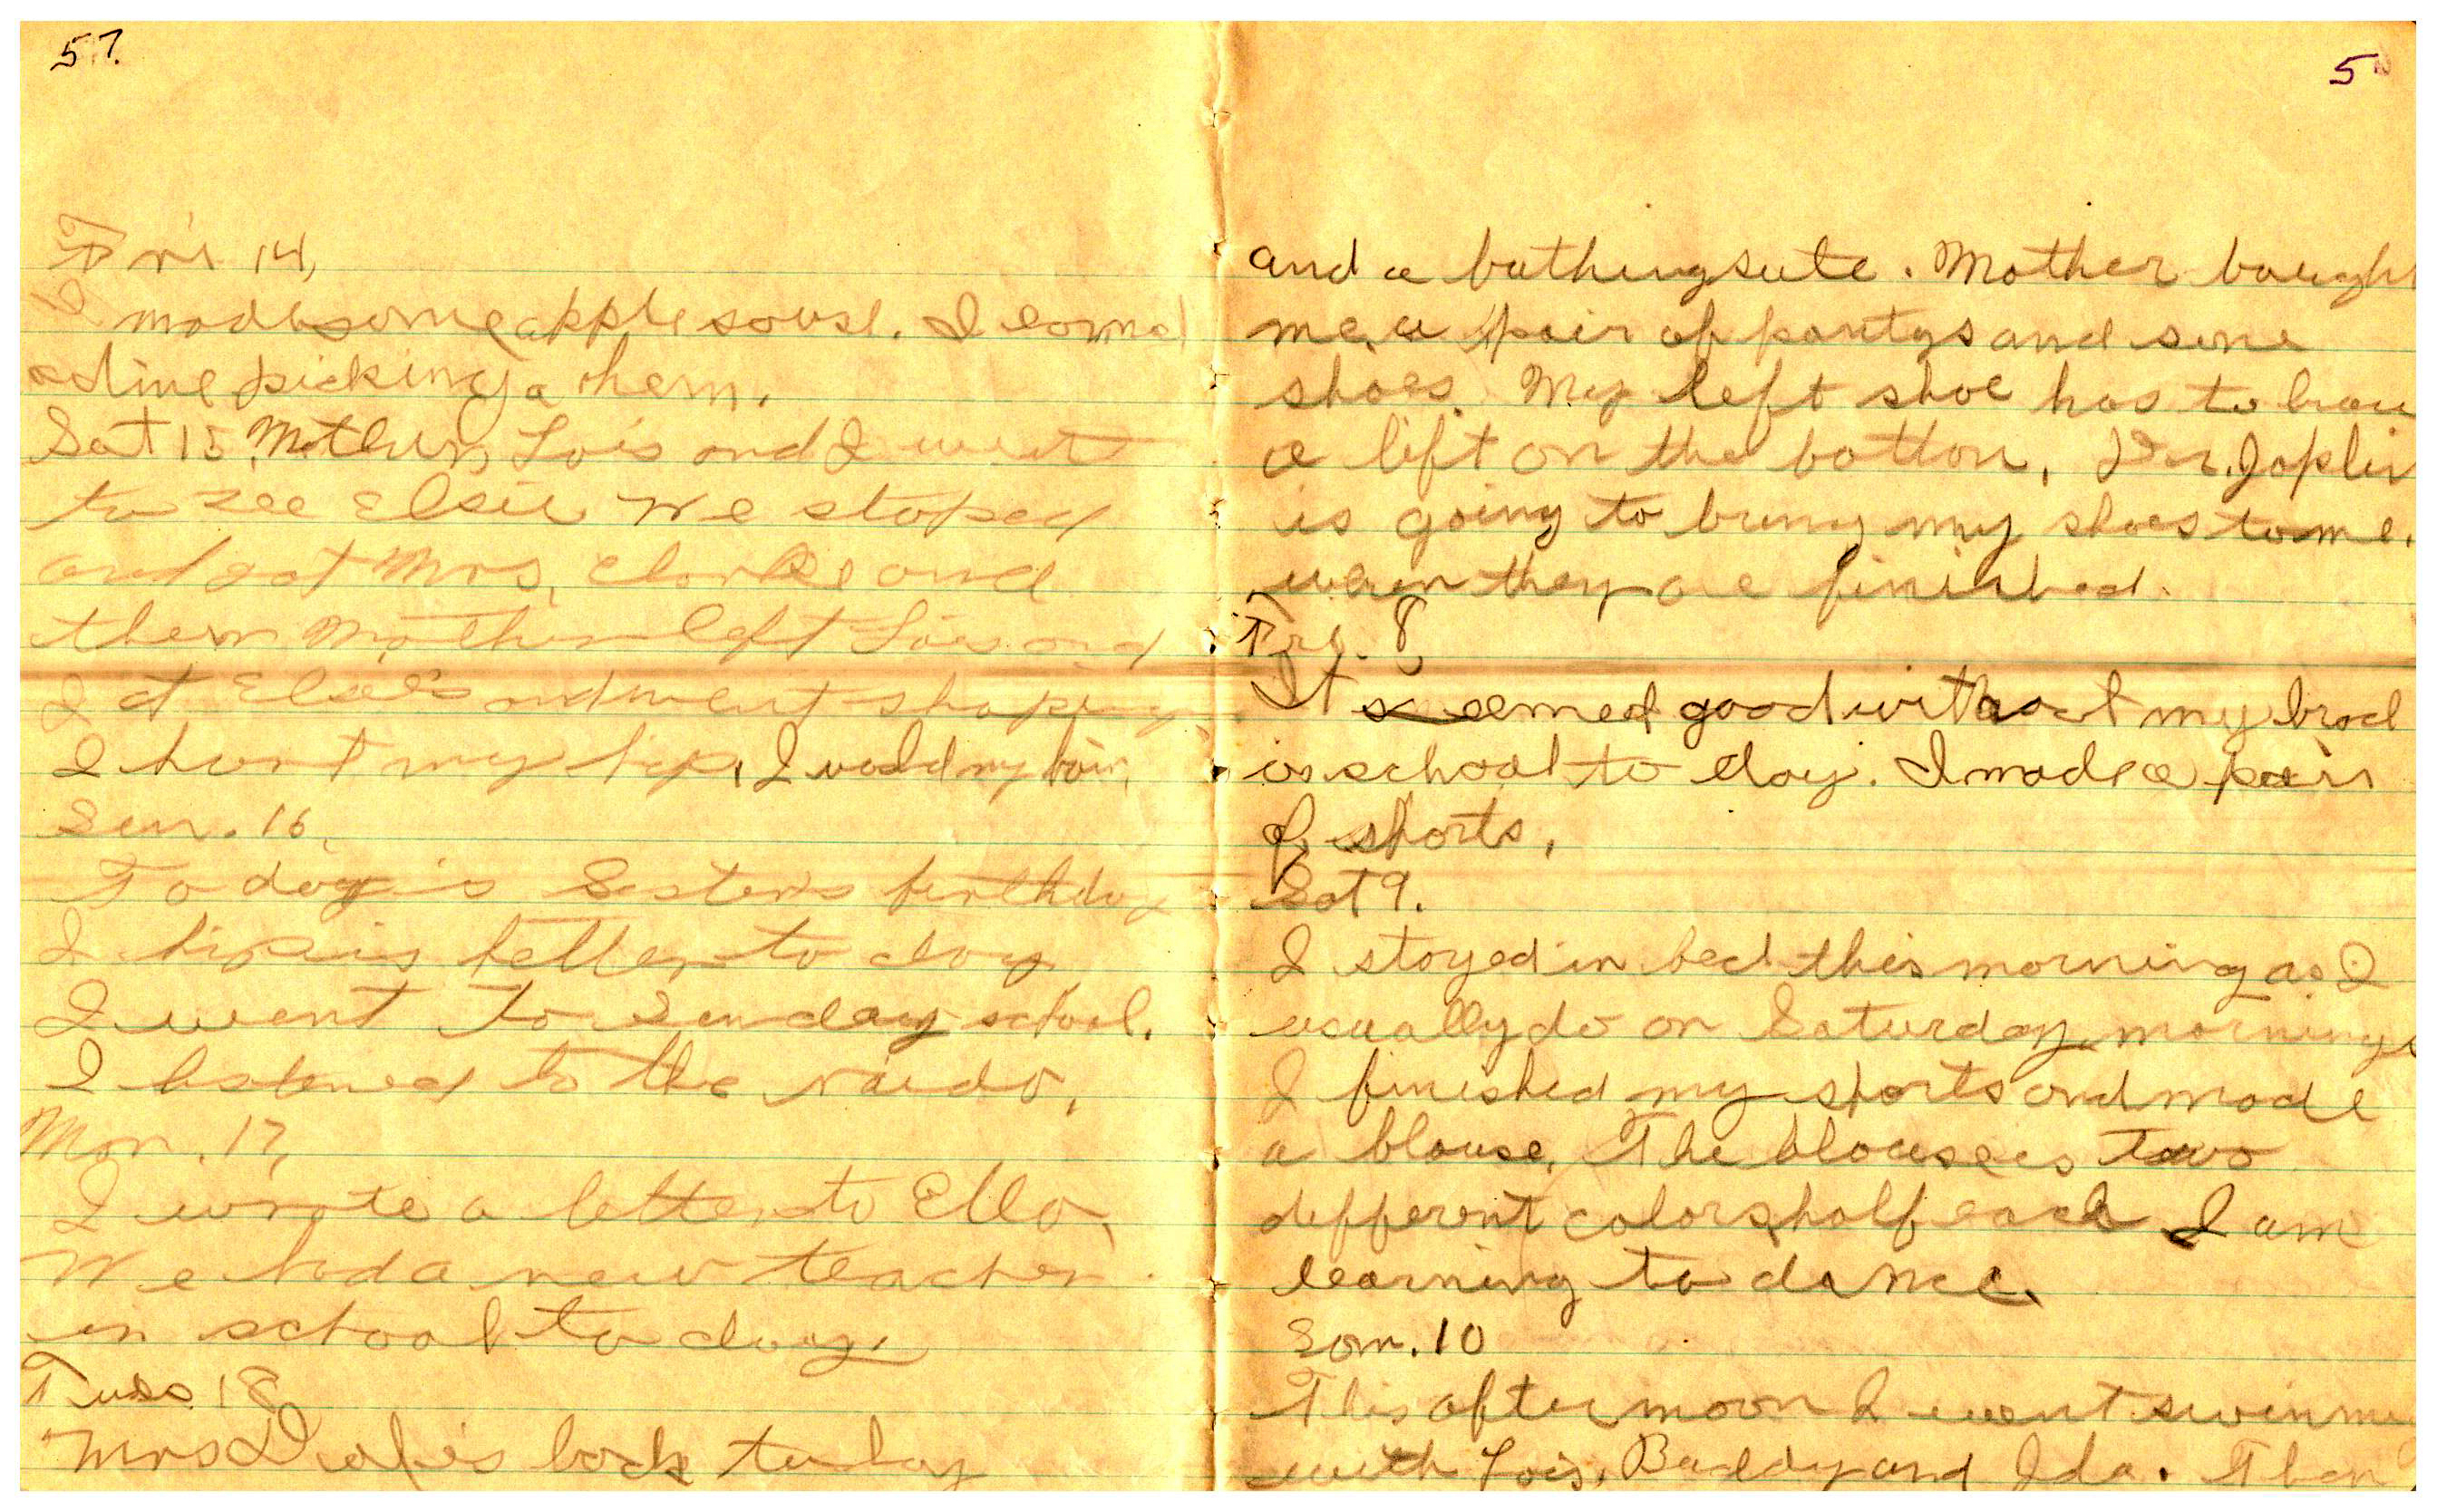 57.
Fri 14,
I made some apple souse. I earned
a dime picking a them.
Sat 15 Mother, Lois and I went
to see Elsie We stoped
and got Mrs. Clarke and
then Mother left Lois and
I at Elsie's and went shoping
I hurt my hip, I washed my hair,
Sun. 16,
To day is Sister's birthday
I hip is better to day
I went To Sunday school.
I listened to the raido,
Mon. 17,
I wrote a letter to Ella,
We had a new teacher
in school to day,
Tues 18
Mrs is back today
5
and a bathing sute. Mother bough
me, a pair of pantys and some
shoes. My left shoe has to have
a lift on the botton, Dr. Joplin
is going to bring my shoes to me,
when they are finished.
Fri. 8,
It seemed good without my brace
in school to day. I made a pair
of shorts,
Sat 9.
I stayed in bed this morning as I
usually do on Saturday mornings
I finished my shorts and made
a blouse, The blouse is two
defferent colors, half each I am
learning to dance,
Son. 10
This after moon I went swimm
with Lois, Buddy and Ida. Then